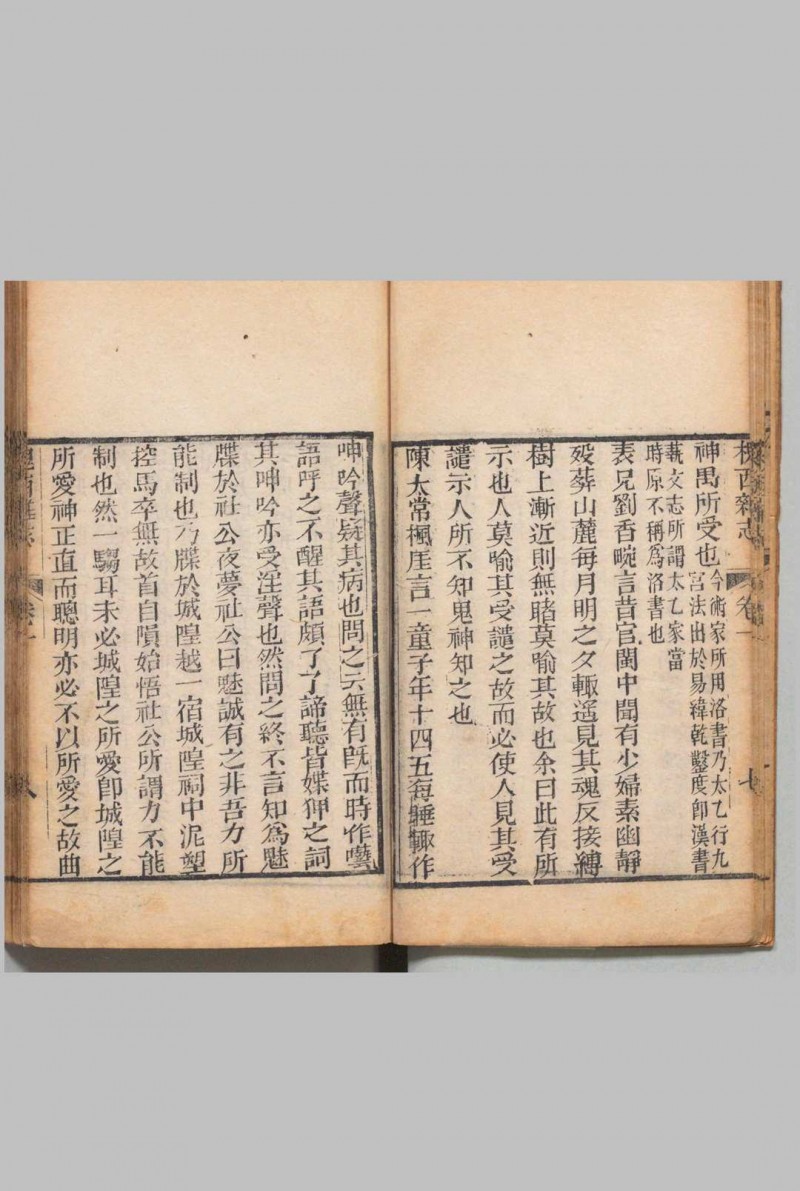 槐西雜志 卷一 七
神禹所受也今術家所用洛書乃太乙行九
宮法出於易緯乾鑿度卽漢書
藝文志所謂太乙家當
時原不稱爲洛書也
表兄劉香畹言昔官閩中聞有少婦素幽靜
歿葬山麓每月明之夕輒遥見其魂反接縛
樹上漸近則無睹莫喻其故也余曰此有所
示也人莫喻其受譴之故而必使人見其受
譴示人所不知鬼神知之也
陳太常楓厓言一童子年十四五每睡輒作
呻吟聲疑其病也問之云無有旣而時作囈
語呼之不醒其語頗了了諦聽皆媟狎之詞
其呻吟亦受淫聲也然問之終不言知爲魅
牒於社公夜夢社公曰魅誠有之非吾力所
能制也乃牒於城隍越一宿城隍祠中泥塑
控馬卒無故首自隕始悟社公所謂力不能
制也然一騶耳未必城隍之所愛卽城隍之
所愛神正直而聰明亦必不以所愛之故曲
槐西雜志 卷一 八